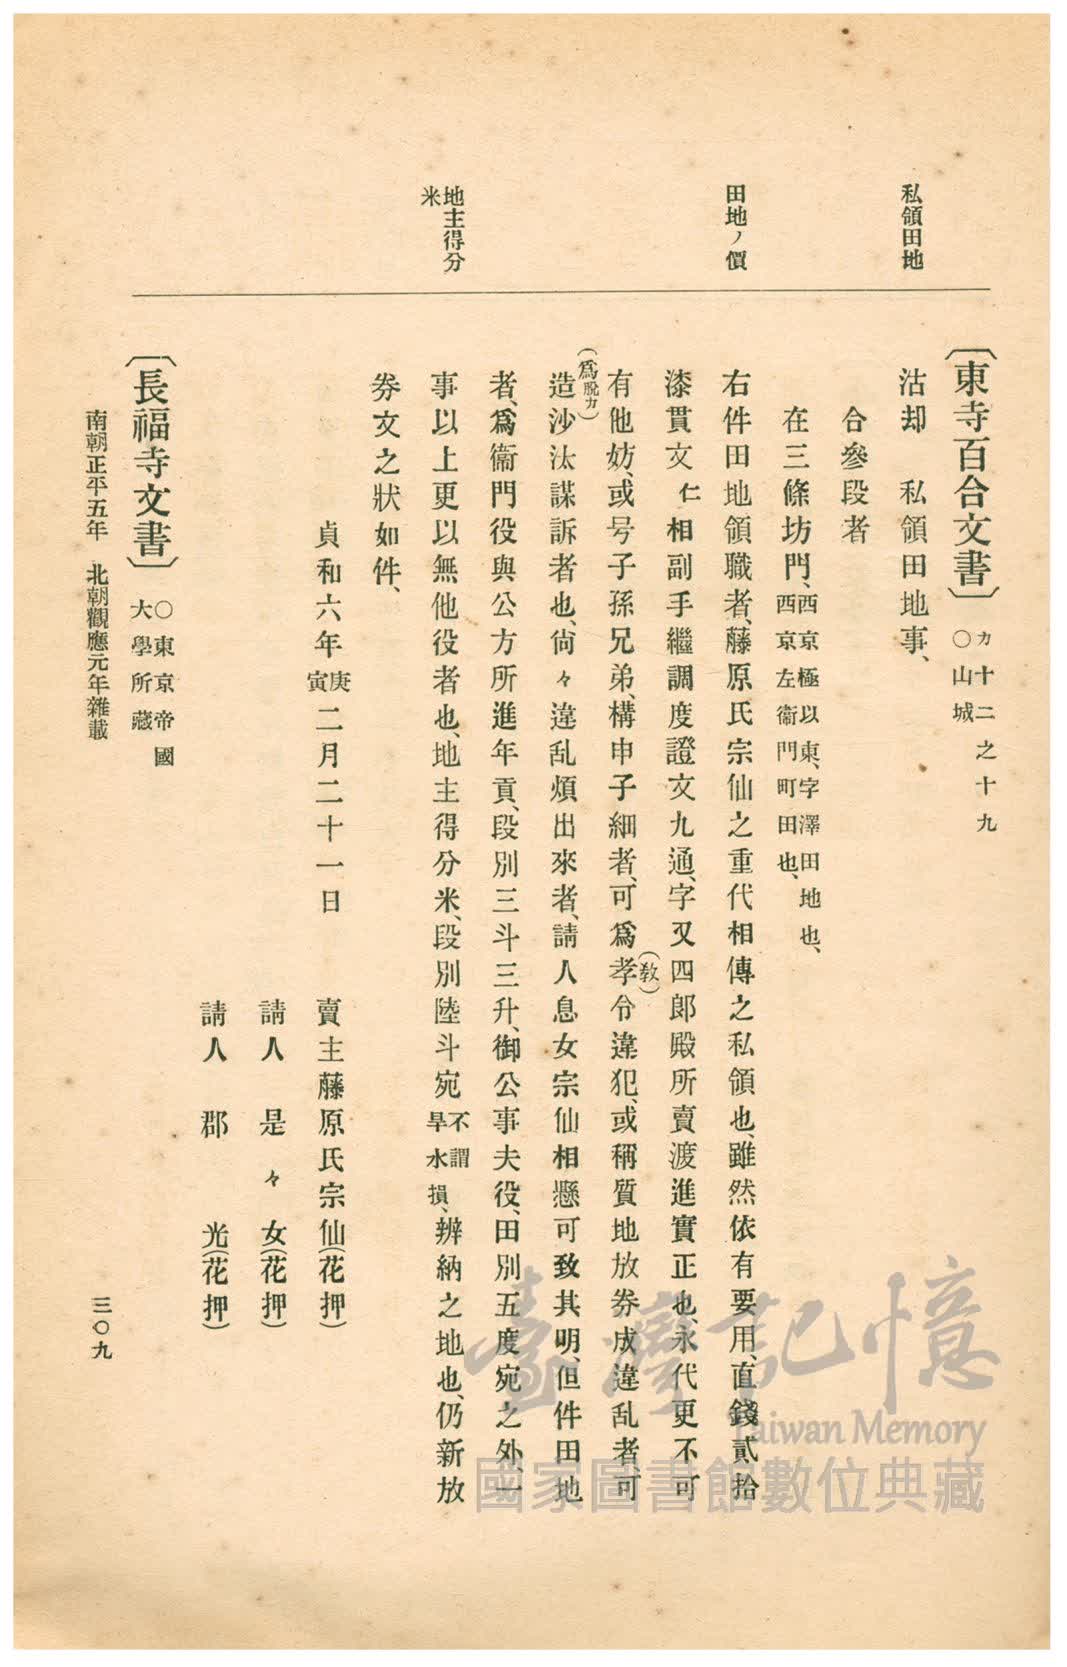 私領田地
田地ノ價
地主得分
米
〔東寺百合文書〕 カ十二之十九
○山城
沽却　私領田地事、
合參段者
在三條坊門、西京極以東、字澤田地也、
西京左衞門町田也、
右件田地領職者、藤原氏宗仙之重代相傳之私領也、雖然依有要用、直錢貳拾
漆貫文仁相副手繼調度證文九通、字又四郎殿所賣渡進實正也、永代更不可
有他妨、或号子孫兄弟、構申子細者、可爲孝(敎)令違犯、或稱質地放券成違乱者、可
(爲脱カ)
造沙汰謀訴者也、尙々違乱煩出來者、請人息女宗仙相懸可致其明、但件田地
者、爲衞門役與公方所進年貢、段別三斗三升、御公事夫役、田別五度宛之外、一
事以上更以無他役者也、地主得分米、段別陸斗宛不謂旱水損、辨納之地也、仍新放
券文之狀如件、
貞和六年庚寅二月二十一日
賣主藤原氏宗仙(花押)
請人　是々女(花押)
請人　郡　光(花押)
〔長福寺文書〕 ○東京帝國
大學所藏
南朝正平五年　北朝觀應元年雜載
三〇九
臺灣記憶
Taiwan Memory
國家圖書館數位典藏